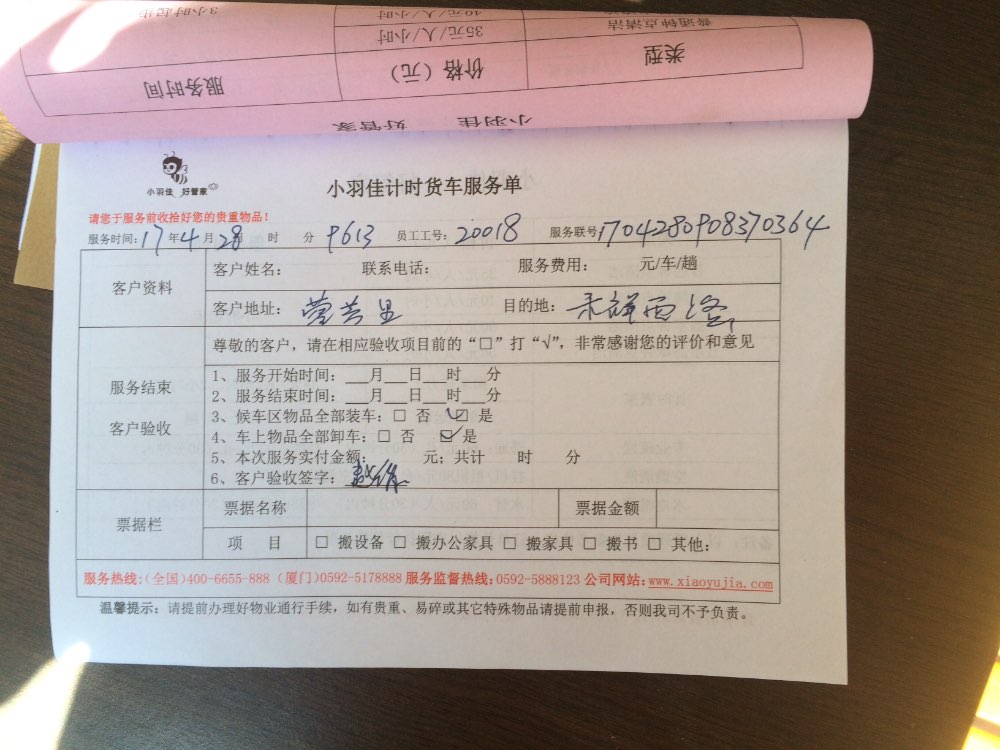 3小时起步 40元/人/小时 普通钟点清洁
35元/人/小时
服务时间 价格（元） 类型
小羽佳 好管家
小羽佳 好管家
小羽佳计时货车服务单
请您于服务前收拾好您的贵重物品！
服务时间：17年4月28日 时 分 9613 员工工号：20018 服务联号170428090837 0364
客户资料
客户姓名： 联系电话： 服务费用： 元/车/趟
客户地址：营芸里 目的地：禾祥西
尊敬的客户，请在相应验收项目前的“□”打“√”，非常感谢您的评价和意见
服务结束
客户验收
1、服务开始时间：___月___日___时___分
2、服务结束时间：___月___日___时___分
3、候车区物品全部装车：□ 否 ☑ 是
4、车上物品全部卸车：□ 否 ☑ 是
5、本次服务实付金额： 元；共计 时 分
6、客户验收签字：
票据栏
票据名称 票据金额
项 目 □ 搬设备 □ 搬办公家具 □ 搬家具 □ 搬书 □ 其他：
服务热线：(全国)400-6655-888 (厦门)0592-5178888 服务监督热线：0592-5888123 公司网站：www.xiaoyujia.com
温馨提示：请提前办理好物业通行手续，如有贵重、易碎或其它特殊物品请提前申报，否则我司不予负责。